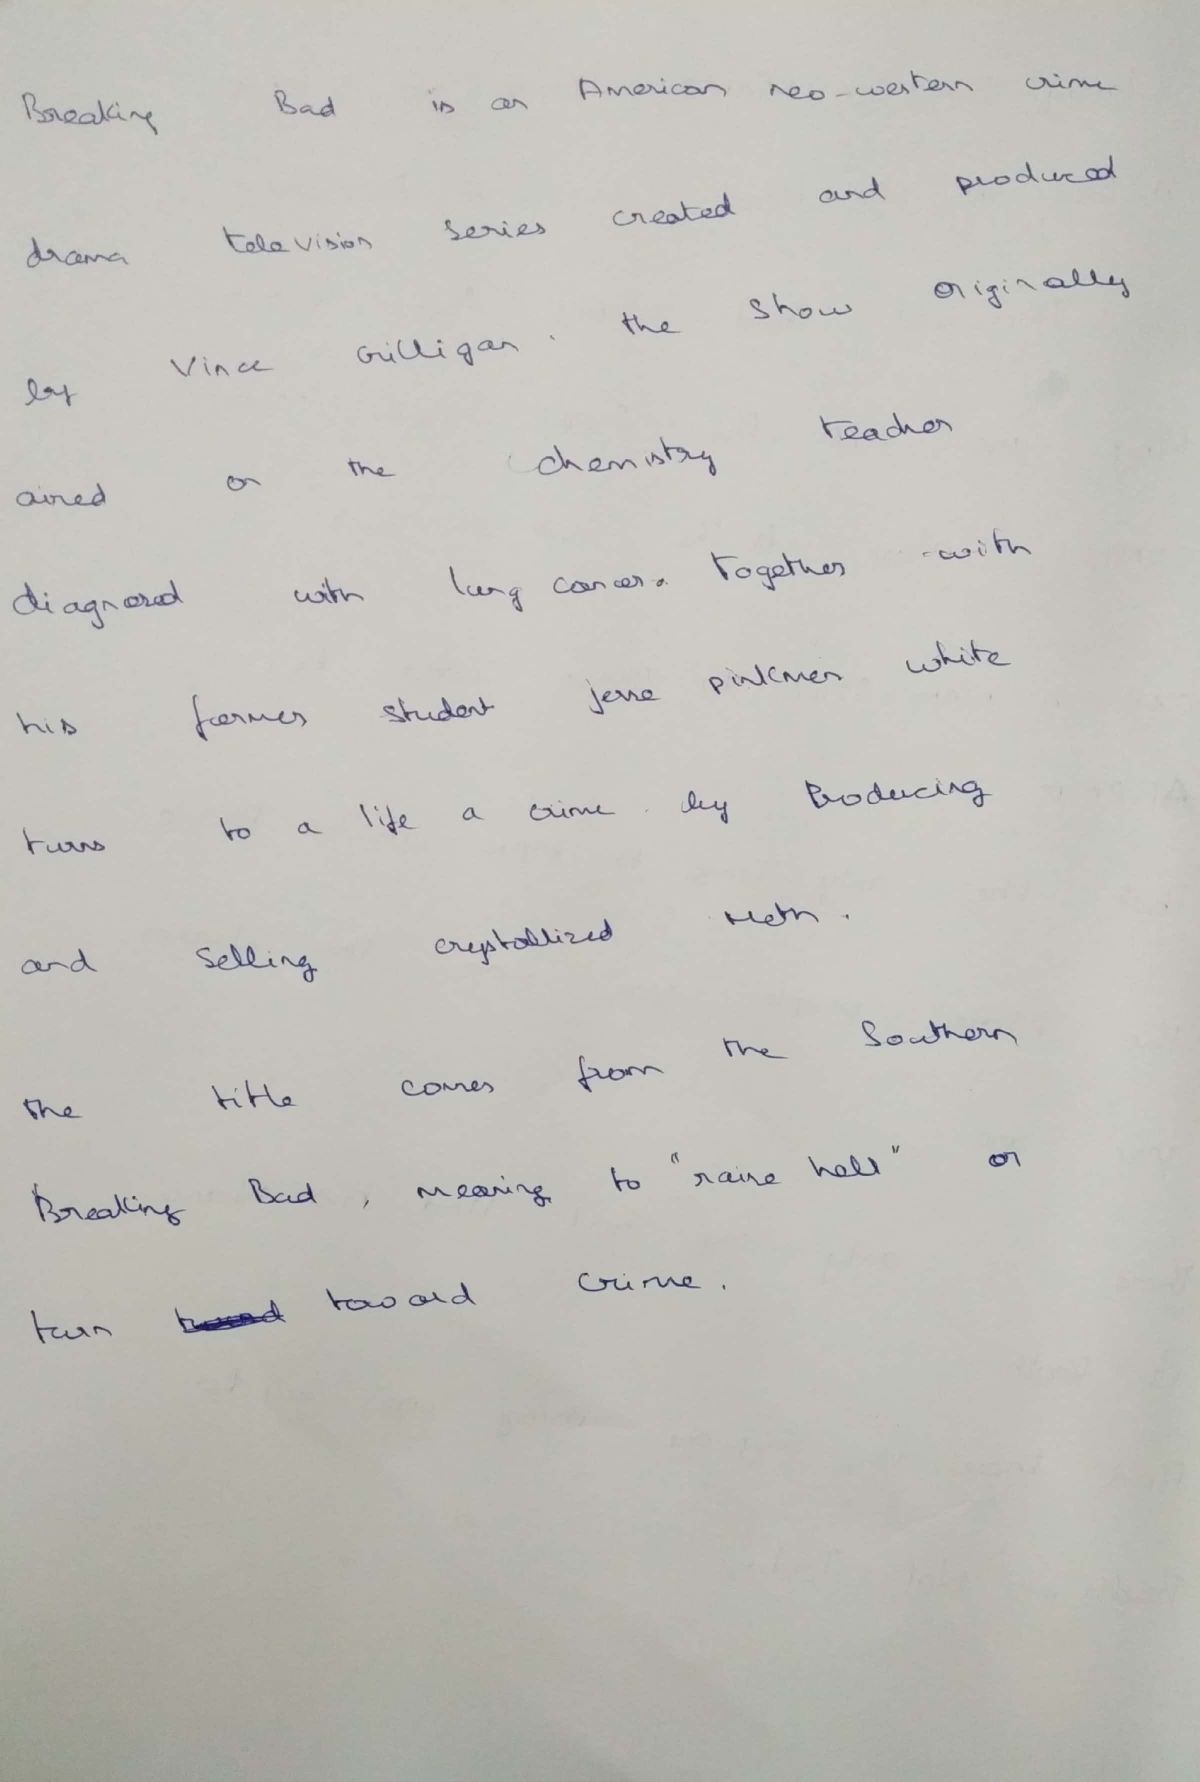 Breaking Bad is an American neo-western crime
drama television series created and produced
by Vince Gilligan. the show originally
aired on the chemistry teacher
diagnosed with lung cancer. Together with
his former student jesse pinkmen white
turns to a life a crime by Producing
and Selling crystallized Meth.
the title comes from the Southern
Breaking Bad, meaning to "raise hell" or
turn toward Crime.